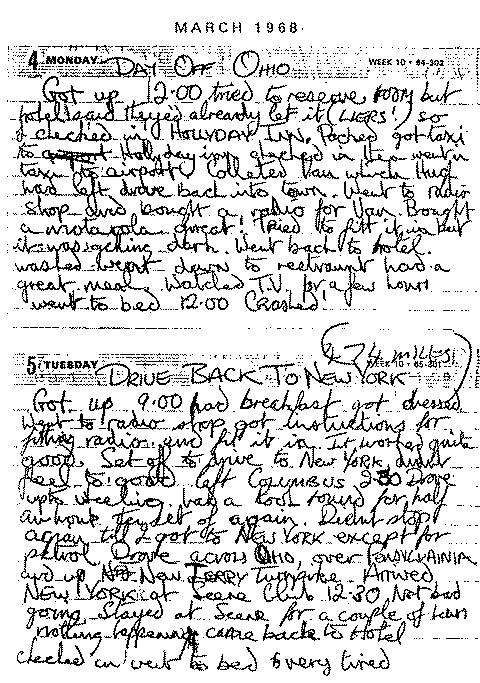 MARCH 1968
4 MONDAY DAY OFF OHIO WEEK 10 • 64-302
Got up 12.00 tried to reserve room but
hotel said theyed already let it (LIERS!) so
I checked in HOLLYDAY INN. Packed got taxi
to Hollyday inn checked in then went in
taxi to airport. Colleted Van which Hugh
had left drove back into town. Went to radio
shop and bought a radio for Van. Bought
a motorola great! Tried to fitt it in but
it was getting dark. Went back to hotel.
washed went down to restraunt had a
great meal. Watched T.V. for a few hours
went to bed 12.00 Crashed!
(674 MILES)
5 TUESDAY DRIVE BACK TO NEW YORK WEEK 10 • 65-301
Got up 9.00 had breakfast got dressed
Went to radio shop got instructions for
fitting radio and fit it in. It worked quite
good. Set off to drive to New York didnt
feel to good left COLUMBUS 3.30 Drove
upto weeling had a look round for half
an hour then set of again. Didnt stop
again till I got to NEW YORK except for
petrol. Drove across OHIO, over PENSYLVAINIA
and up NEW JERRY turnpike Arrived
NEW YORK at Scene Club 12.30 Not bad
going. Stayed at Scene for a couple of hours
nothing happening came back to Hotel
checked in went to bed very tired